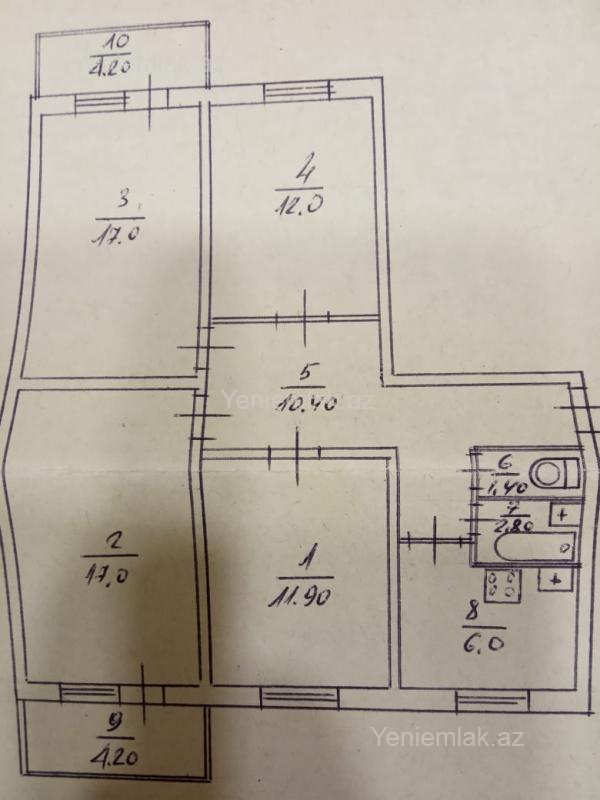 10
4.20
3
17.0
4
12.0
5
10.40
Yeniemlak.az
6
1,40
7
2.80
2
17,0
1
11.90
8
6,0
9
4.20
Yeniemlak.az